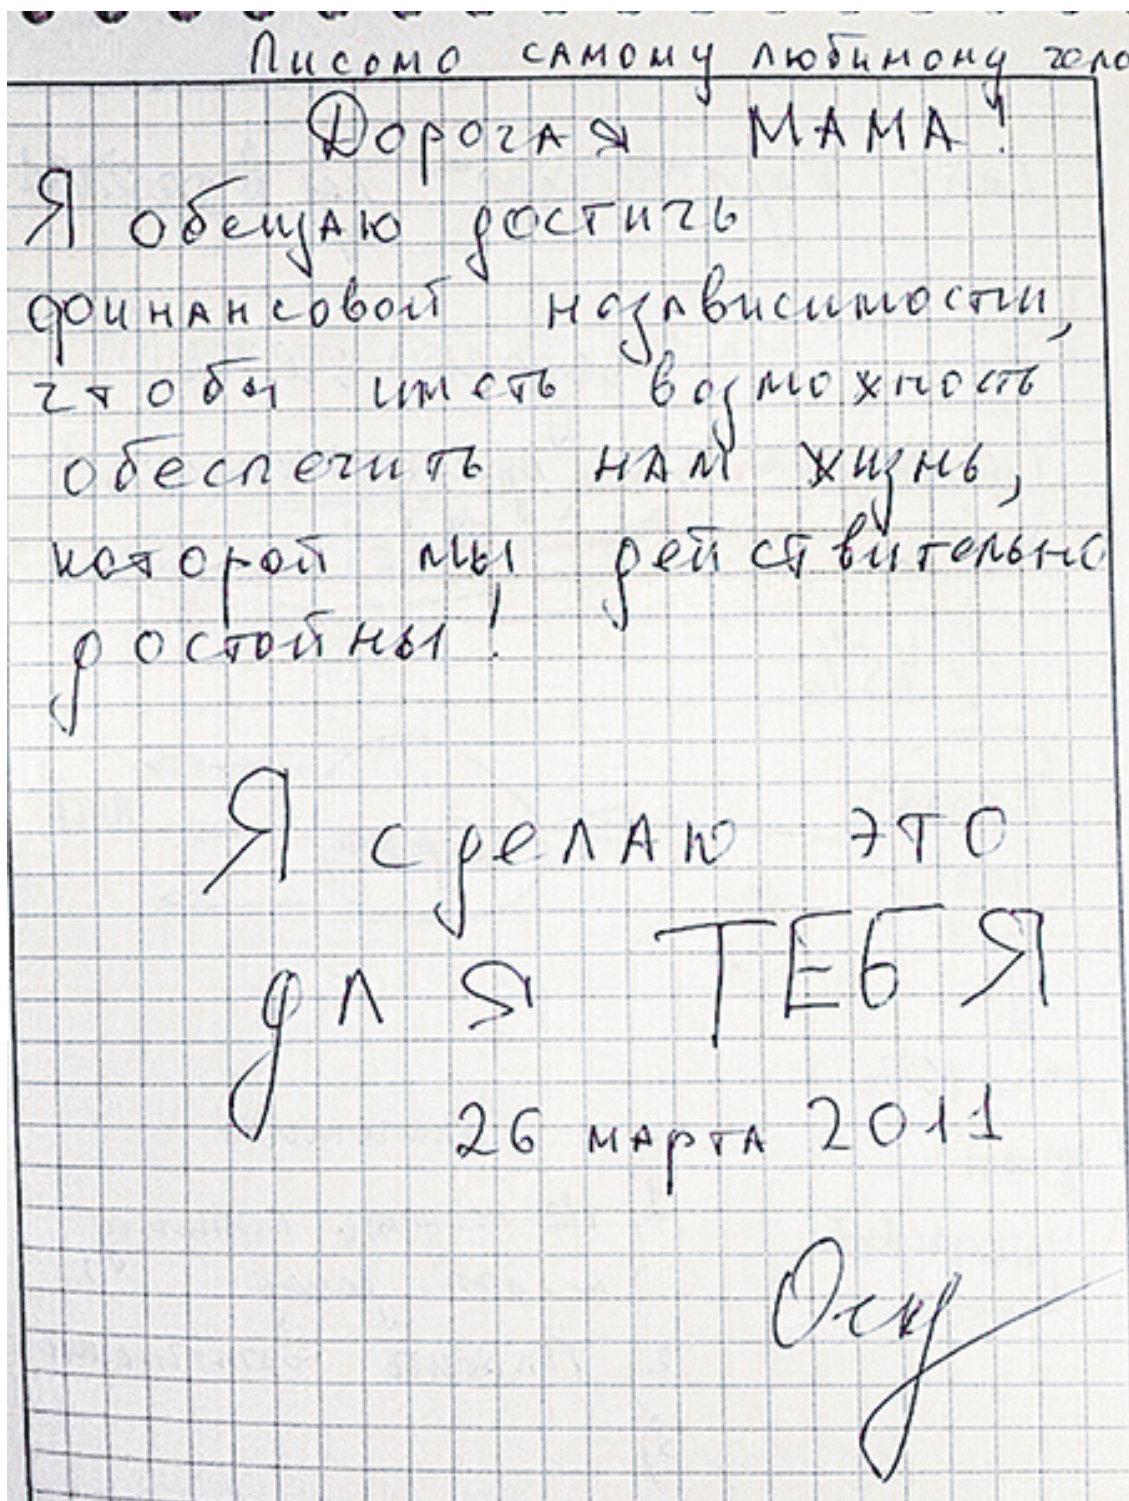 Писомо самому любимому чело
Дорогая МАМА!
Я обещаю достичь
финансовой независимости,
чтобы иметь возможность
обеспечить нам жизнь,
которой мы действительно
достойны!
Я сделаю это
для ТЕБЯ
26 марта 2011